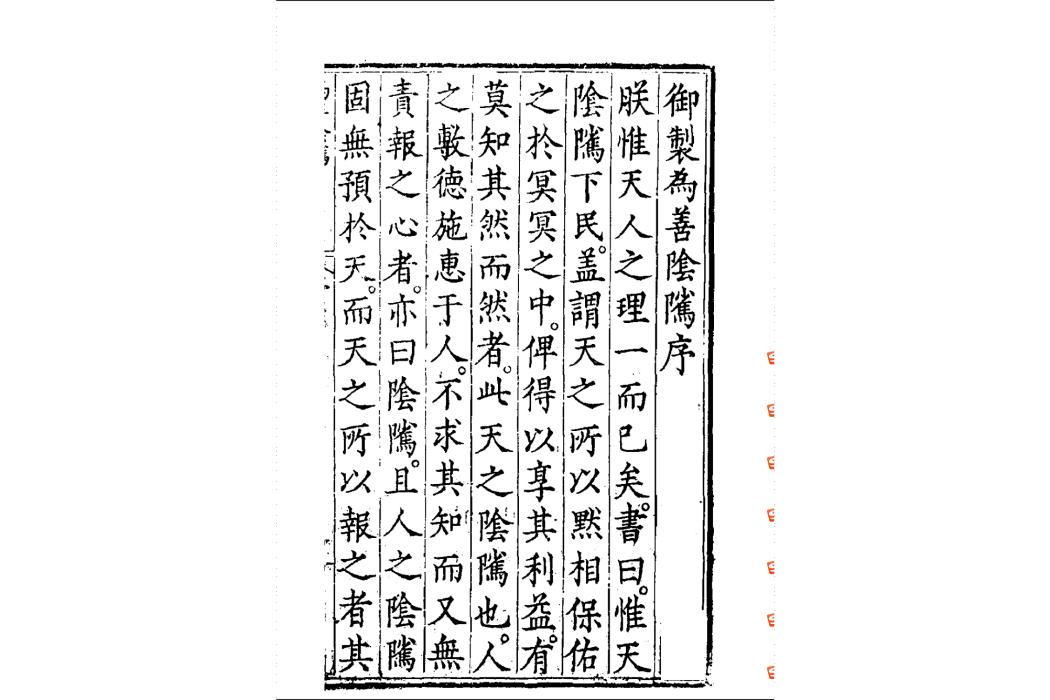 御製為善陰隲序
朕惟天人之理一而已矣。書曰。惟天
陰隲下民。盖謂天之所以默相保佑
之於冥冥之中。俾得以享其利益。有
莫知其然而然者。此天之陰隲也。人
之敷德施惠于人。不求其知而又無
責報之心者。亦曰陰隲。且人之陰隲
固無預於天。而天之所以報之者其